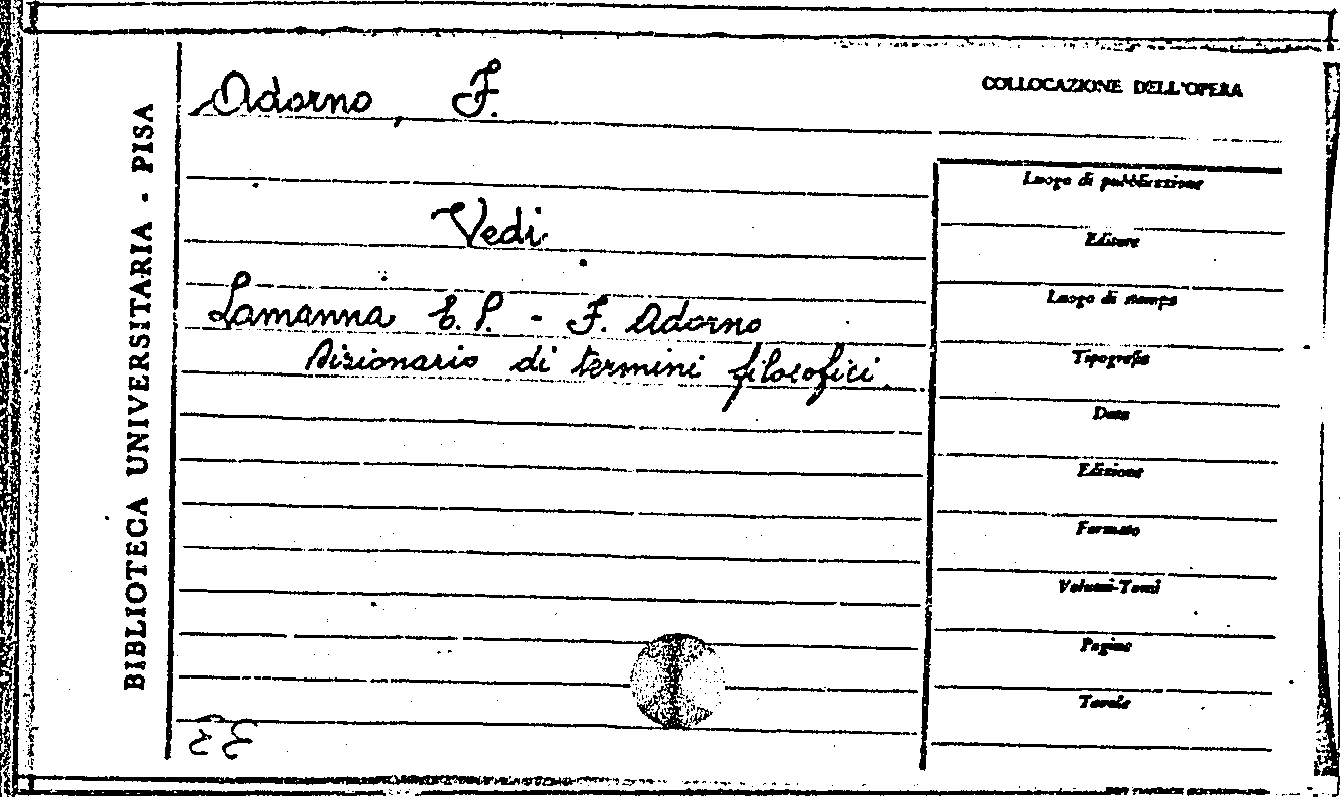 BIBLIOTECA UNIVERSITARIA - PISA
Adorno, F.
Vedi
Lamanna E. P. - F. Adorno
Dizionario di termini filosofici.
COLLOCAZIONE DELL'OPERA
Luogo di pubblicazione
Editore
Luogo di stampa
Tipografia
Data
Edizione
Formato
Volumi-Tomi
Pagine
Tavole